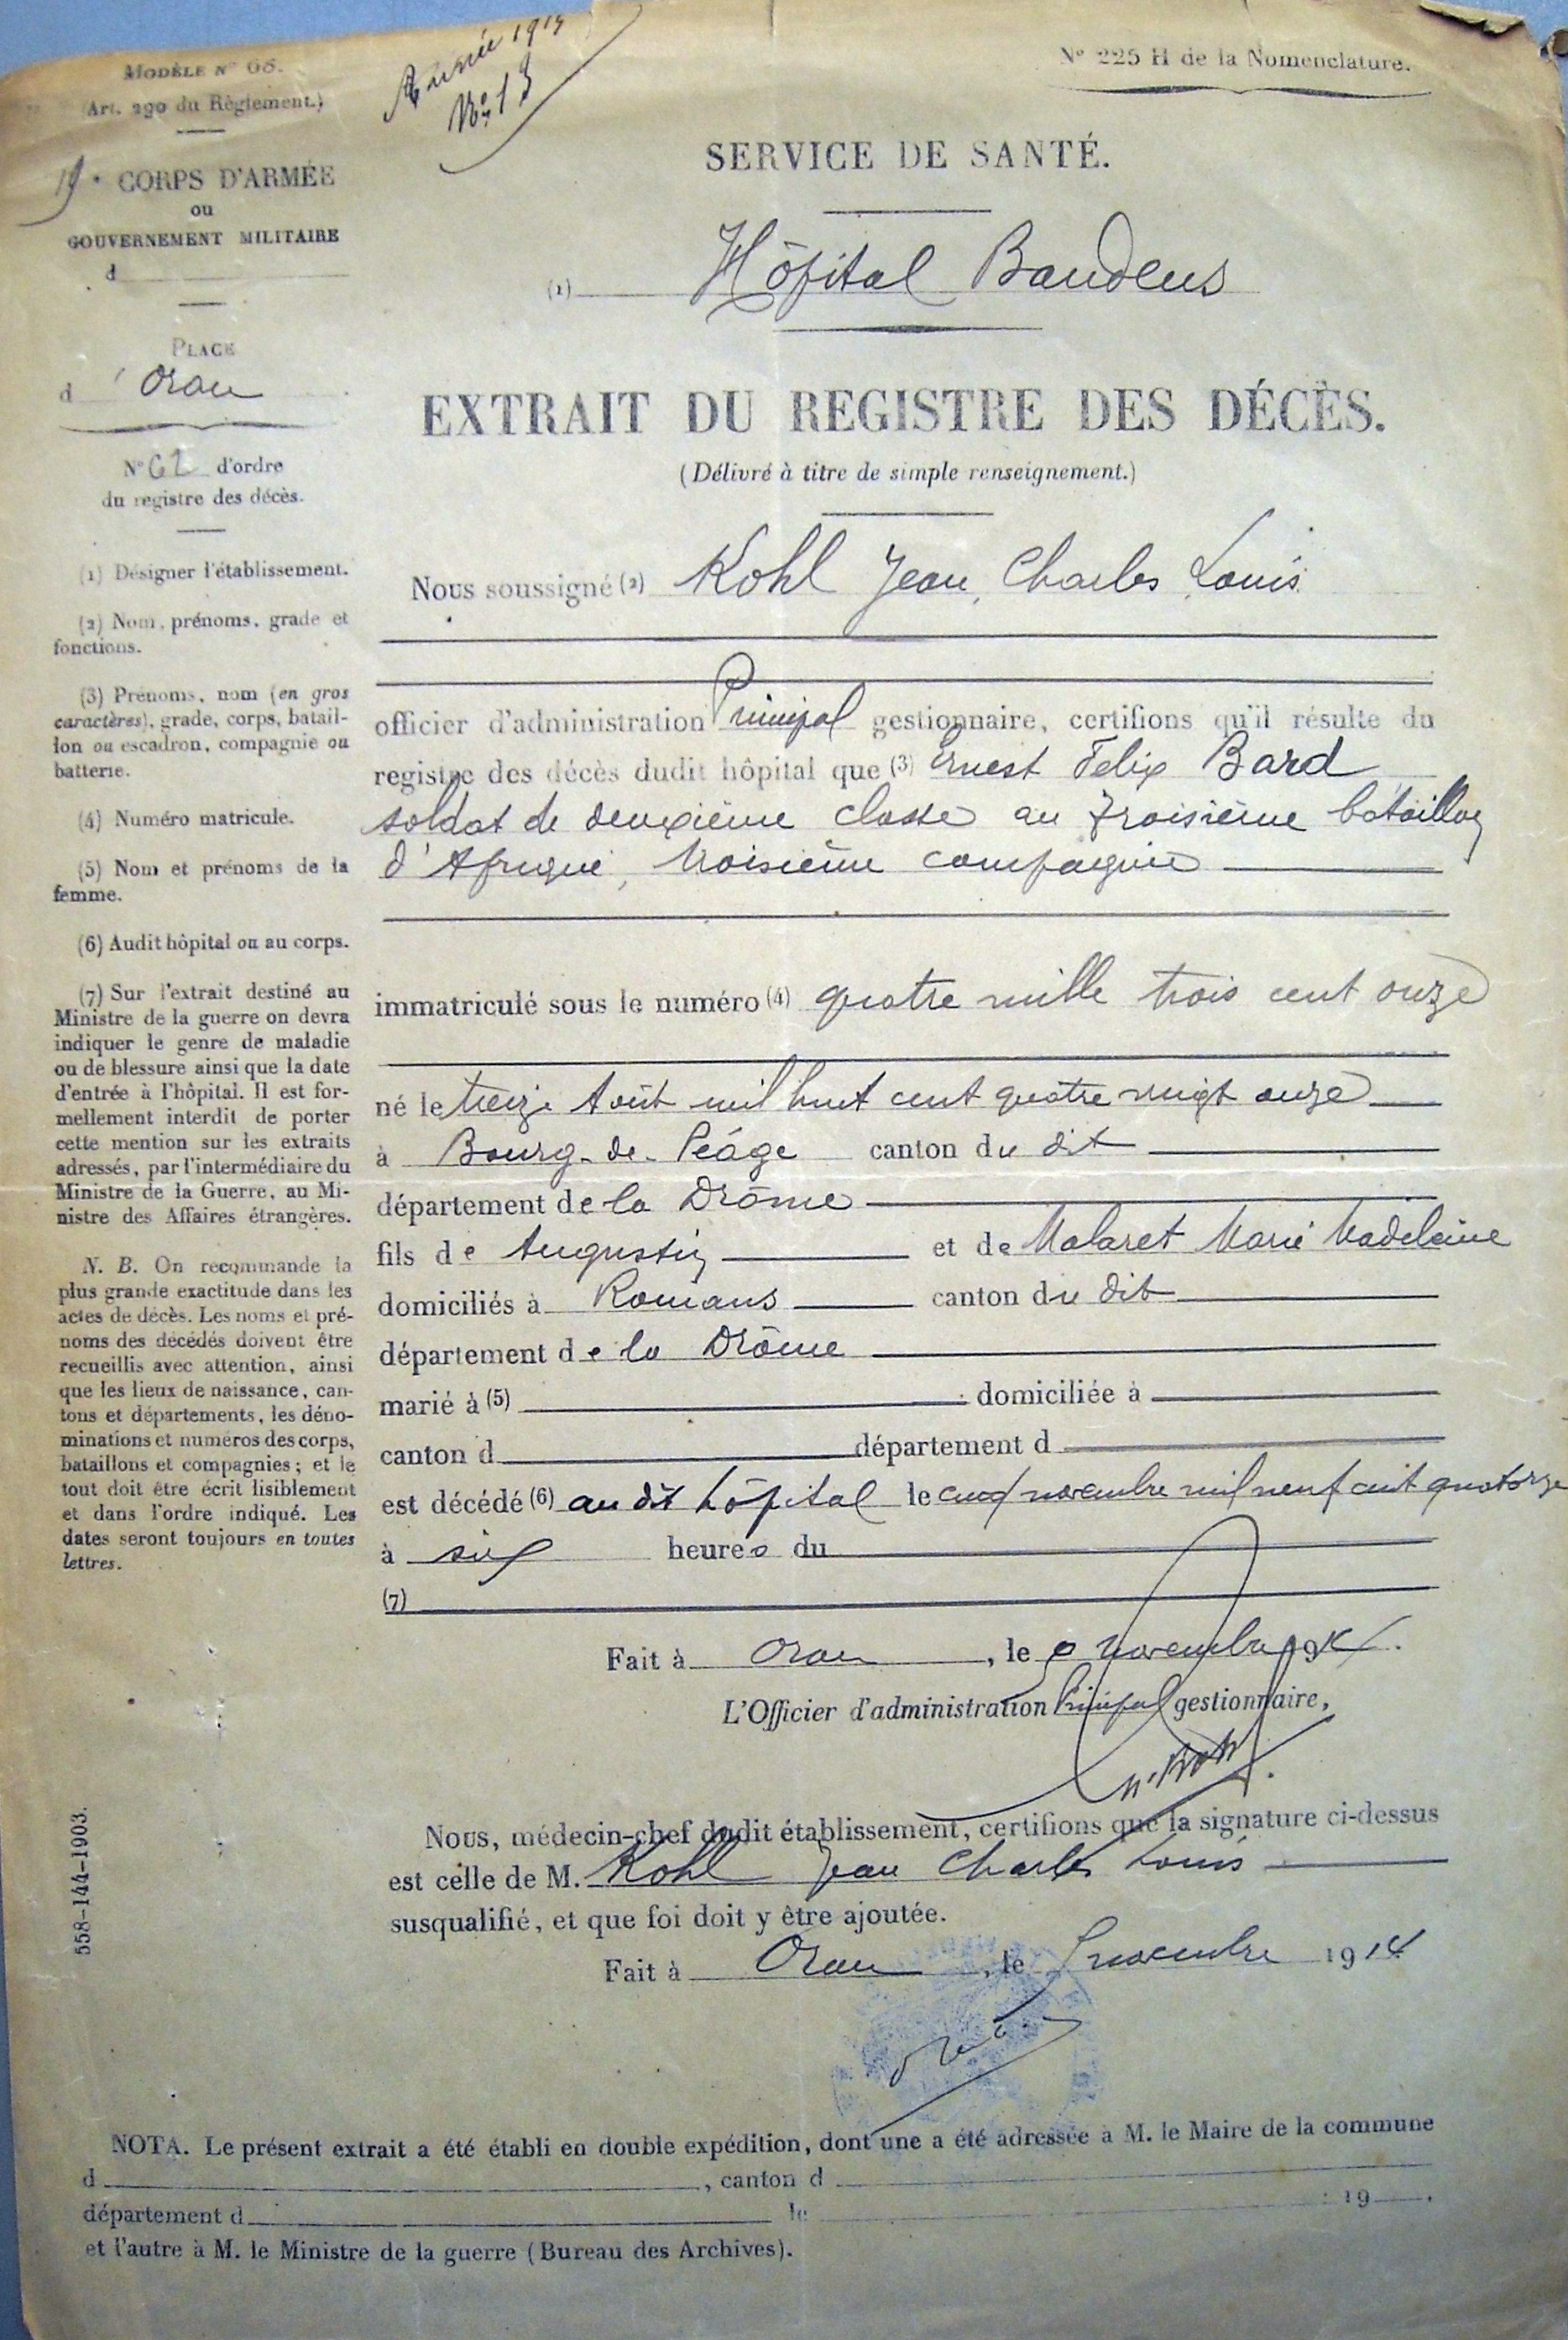 MODÈLE N° 66.
(Art. 290 du Règlement.)
Année 1914
N° 13
N° 225 H de la Nomenclature.
19e CORPS D'ARMÉE
ou
GOUVERNEMENT MILITAIRE
d
PLACE
d'Oran
N° 62 d'ordre
du registre des décès.
(1) Désigner l'établissement.
(2) Nom, prénoms, grade et
fonctions.
(3) Prénoms, nom (en gros
caractères), grade, corps, batail-
lon ou escadron, compagnie ou
batterie.
(4) Numéro matricule.
(5) Nom et prénoms de la
femme.
(6) Audit hôpital ou au corps.
(7) Sur l'extrait destiné au
Ministre de la guerre on devra
indiquer le genre de maladie
ou de blessure ainsi que la date
d'entrée à l'hôpital. Il est for-
mellement interdit de porter
cette mention sur les extraits
adressés, par l'intermédiaire du
Ministre de la Guerre, au Mi-
nistre des Affaires étrangères.
N. B. On recommande la
plus grande exactitude dans les
actes de décès. Les noms et pré-
noms des décédés doivent être
recueillis avec attention, ainsi
que les lieux de naissance, can-
tons et départements, les déno-
minations et numéros des corps,
bataillons et compagnies; et le
tout doit être écrit lisiblement
et dans l'ordre indiqué. Les
dates seront toujours en toutes
lettres.
558-144-1903.
SERVICE DE SANTÉ.
(1) Hôpital Baudens
EXTRAIT DU REGISTRE DES DÉCÈS.
(Délivré à titre de simple renseignement.)
Nous soussigné (2) Kohl Jean, Charles, Louis
officier d'administration Principal gestionnaire, certifions qu'il résulte du
registre des décès dudit hôpital que (3) Ernest Felix Bard
soldat de deuxième classe au troisième bataillon
d'Afrique, troisième compagnie
immatriculé sous le numéro (4) quatre mille trois cent onze
né le treize Août mil huit cent quatre vingt onze
à Bourg-de-Péage canton du dit
département de la Drôme
fils de Augustin et de Malaret Marie Madeleine
domiciliés à Romans canton du dit
département de la Drôme
marié à (5) domiciliée à
canton d département d
est décédé (6) au dit hôpital le cinq novembre mil neuf cent quatorze
à six heures du
(7)
Fait à Oran, le 5 novembre 1914.
L'Officier d'administration Principal gestionnaire,
Nous, médecin-chef dudit établissement, certifions que la signature ci-dessus
est celle de M. Kohl Jean Charles Louis
susqualifié, et que foi doit y être ajoutée.
Fait à Oran, le 5 novembre 1914
NOTA. Le présent extrait a été établi en double expédition, dont une a été adressée à M. le Maire de la commune
d , canton d
département d le 19 .
et l'autre à M. le Ministre de la guerre (Bureau des Archives).